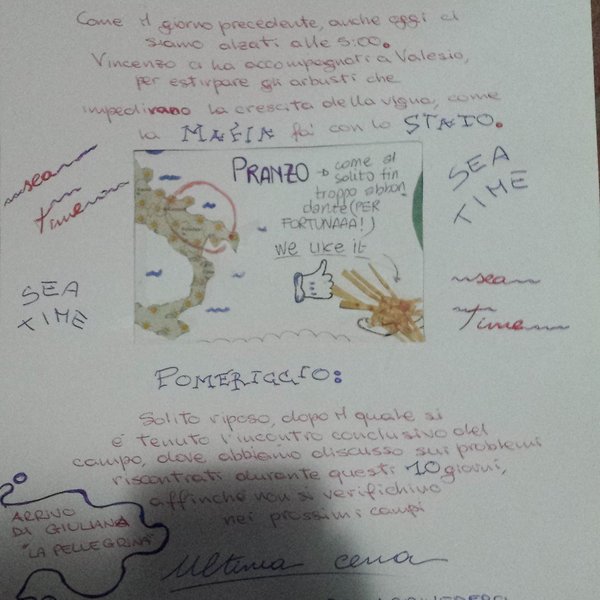 Come il giorno precedente, anche oggi ci
siamo alzati alle 5:00.
Vincenzo ci ha accompagnati a Valesio,
per estirpare gli arbusti che
impedivano la crescita della vigna, come
la MAFIA fa' con lo STATO.
sea
time
SEA
TIME
PRANZO → come al
solito fin
troppo abbon
dante (PER
FORTUNAAA!)
we like it
SEA
TIME
sea
time
POMERIGGIO:
Solito riposo, dopo il quale si
è tenuto l'incontro conclusivo del
campo, dove abbiamo discusso sui problemi
riscontrati durante questi 10 giorni,
affinché non si verifichino
nei prossimi campi
ARRIVO
DI GIULIANA
"LA PELLEGRINA"
Ultima cena